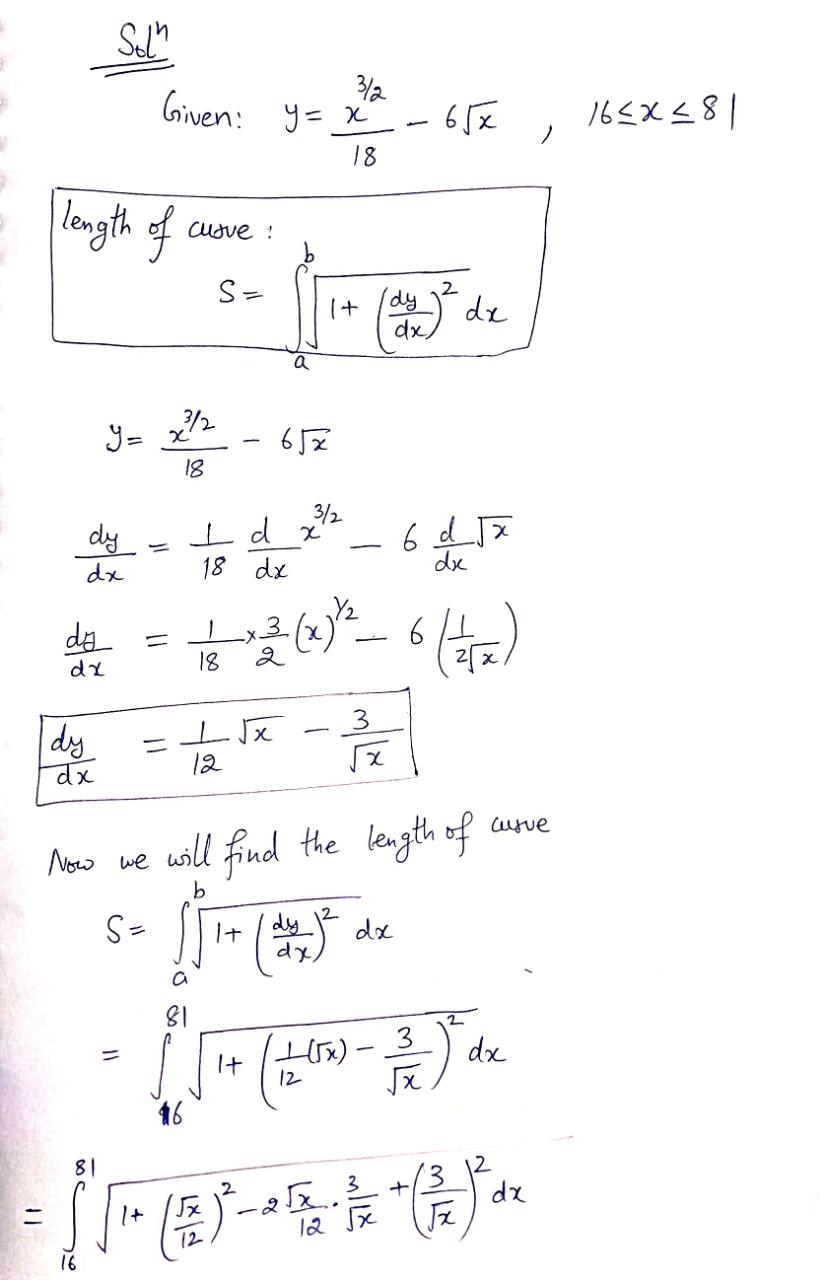 Solⁿ
Given: y = x^{3/2}/18 - 6√x , 16 ≤ x ≤ 81
length of curve :
S = ∫_a^b √(1 + (dy/dx)^2) dx
y = x^{3/2}/18 - 6√x
dy/dx = 1/18 d/dx x^{3/2} - 6 d/dx √x
dy/dx = 1/18 × 3/2 (x)^{1/2} - 6 (1/(2√x))
dy/dx = 1/12 √x - 3/√x
Now we will find the length of curve
S = ∫_a^b √(1 + (dy/dx)^2) dx
= ∫_16^81 √(1 + (1/12 (√x) - 3/√x)^2) dx
= ∫_16^81 √(1 + (√x/12)^2 - 2 √x/12 · 3/√x + (3/√x)^2) dx